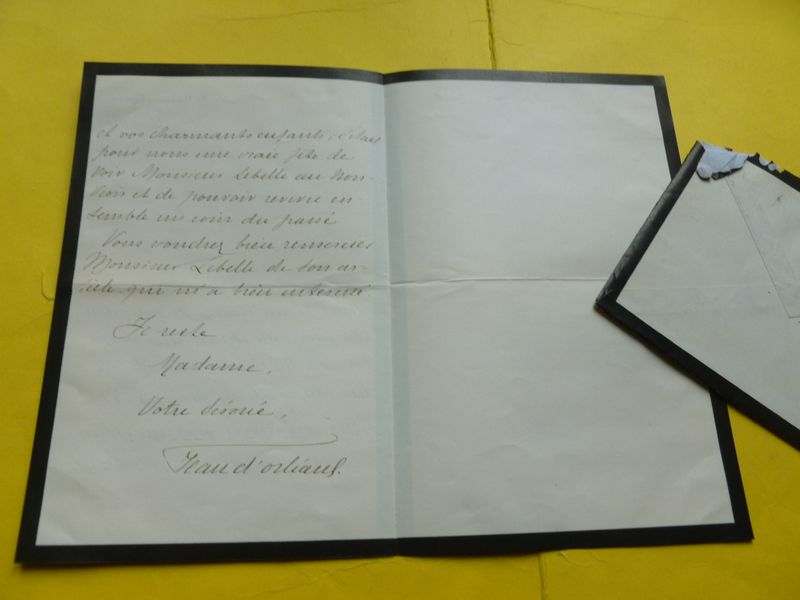 et vos charmants enfants. c'était
pour nous une vraie fête de
voir Monsieur Lebelle au Nou-
vion et de pouvoir revivre en-
semble un coin du passé
Vous voudrez bien remercier
Monsieur Lebelle de son ar-
ticle qui m'a bien interessé
Je reste
Madame,
Votre dévoué,
Jean d'orléans.